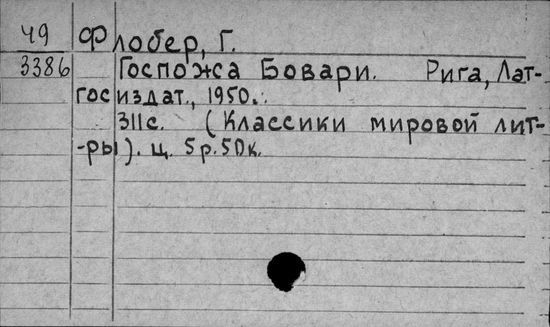 Ч9 Флобер, Г.
3386 Госпожа Бовари. Рига, Лат-
госиздат., 1950.
311с. (Классики мировой лит-
-ры). ц. 5р.50к.